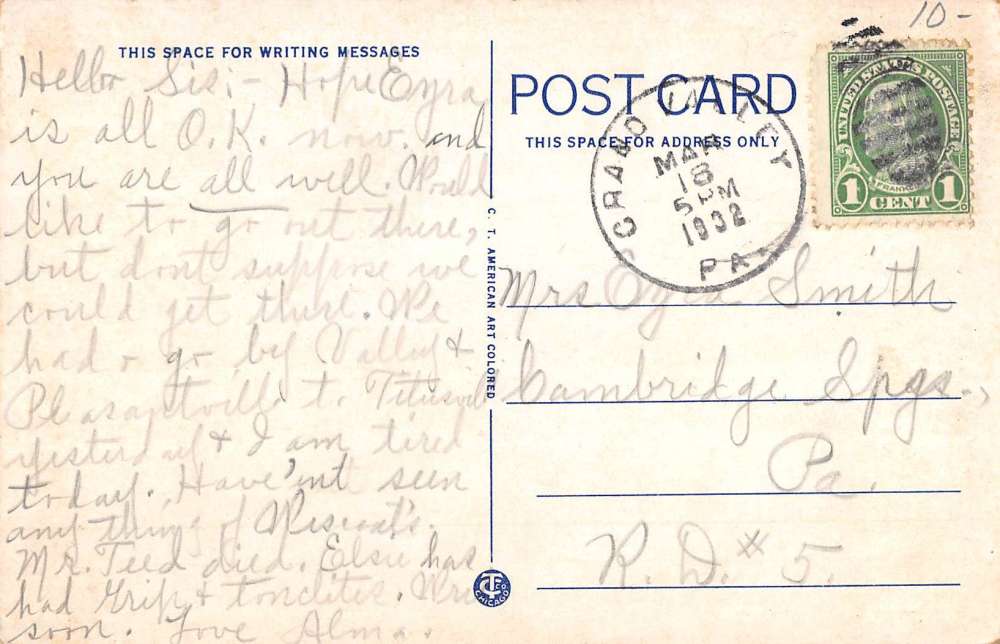 10-
THIS SPACE FOR WRITING MESSAGES
Hello Sis:- Hope Ezra
is all O.K. now. and
you are all well. Would
like to go out there,
but dont suppose we
could get there. We
had to go by Valley &
Pleasantville to Titusville
yesterday & I am tired
today. Have'ent seen
any thing of
Mr. Teed died. Elsie has
had Grip & tonclites.
soon. Love Alma.
C. T. AMERICAN ART COLORED
CT CO. CHICAGO
POST CARD
THIS SPACE FOR ADDRESS ONLY
GRAND VALLEY
MAR
18
5 PM
1932
PA
UNITED STATES POSTAGE
FRANKLIN
1 CENT 1
Mrs Ezra Smith
Cambridge Spgs.,
Pa.
R. D. # 5.